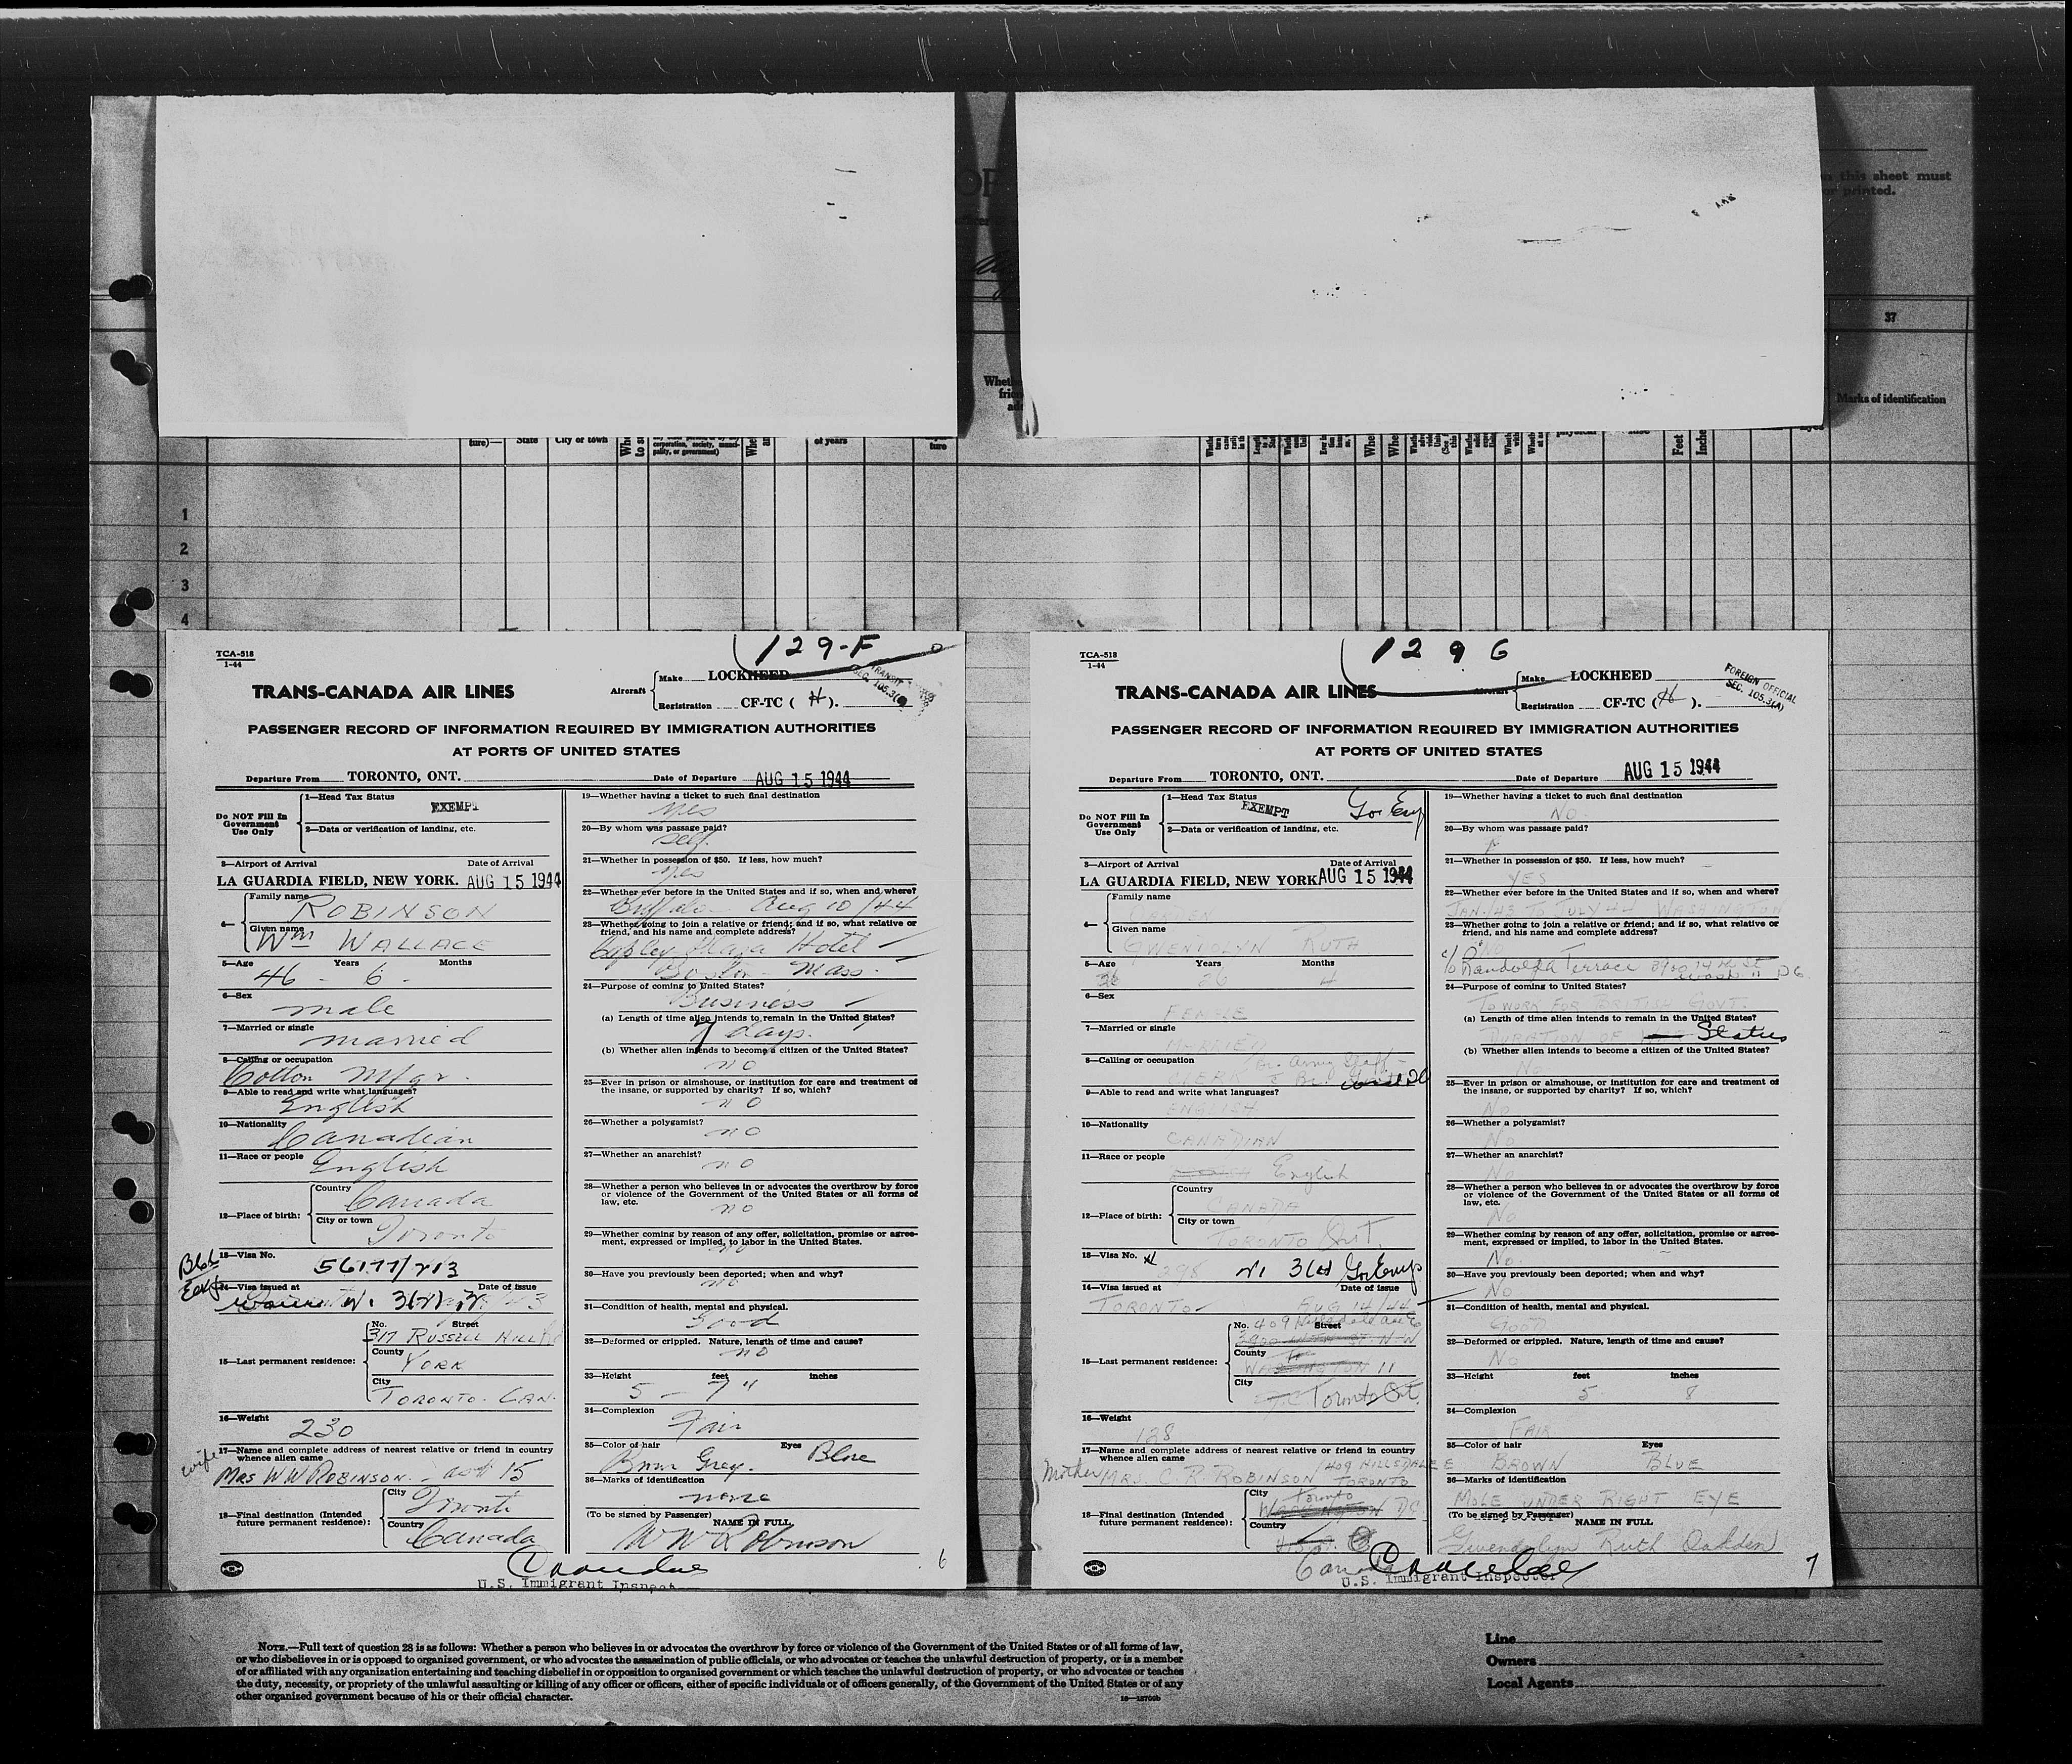 OF
n this sheet must
or printed.
37
Wheth
frien
add
Marks of identification
ture)—
State
City or town
corporation, society, munici-
pality, or government)
of years
ture
Feet
Inche
1
2
3
4
129-F
TCA-518
1-44
TRANS-CANADA AIR LINES
Aircraft
Make LOCKHEED
Registration CF-TC ( H ).
PASSENGER RECORD OF INFORMATION REQUIRED BY IMMIGRATION AUTHORITIES
AT PORTS OF UNITED STATES
Departure From TORONTO, ONT. Date of Departure AUG 15 1944
Do NOT Fill In
Government
Use Only
1—Head Tax Status
EXEMPT
2—Data or verification of landing, etc.
3—Airport of Arrival Date of Arrival
LA GUARDIA FIELD, NEW YORK. AUG 15 1944
4—
Family name
ROBINSON
Given name
Wm WALLACE
5—Age Years Months
46 - 6 -
6—Sex
male
7—Married or single
married
8—Calling or occupation
Cotton Mfgr.
9—Able to read and write what languages?
English
10—Nationality
Canadian
11—Race or people
English
12—Place of birth:
Country
Canada
City or town
Toronto
13—Visa No.
56177/213
14—Visa issued at Date of issue
15—Last permanent residence:
No. Street
317 RUSSELL HILL Rd
County
YORK
City
TORONTO. CAN.
16—Weight
230
17—Name and complete address of nearest relative or friend in country
whence alien came
wife
MRS W W ROBINSON. - as # 15
18—Final destination (Intended
future permanent residence):
City
Toronto
Country
Canada
19—Whether having a ticket to such final destination
yes
20—By whom was passage paid?
self.
21—Whether in possession of $50. If less, how much?
yes
22—Whether ever before in the United States and if so, when and where?
Buffalo - Aug 10/44
23—Whether going to join a relative or friend; and if so, what relative or
friend, and his name and complete address?
Copley Plaza Hotel
Boston - Mass.
24—Purpose of coming to United States?
Business
(a) Length of time alien intends to remain in the United States?
7 days.
(b) Whether alien intends to become a citizen of the United States?
no
25—Ever in prison or almshouse, or institution for care and treatment of
the insane, or supported by charity? If so, which?
no
26—Whether a polygamist?
no
27—Whether an anarchist?
no
28—Whether a person who believes in or advocates the overthrow by force
or violence of the Government of the United States or all forms of
law, etc.
no
29—Whether coming by reason of any offer, solicitation, promise or agree-
ment, expressed or implied, to labor in the United States.
no
30—Have you previously been deported; when and why?
no
31—Condition of health, mental and physical.
Good
32—Deformed or crippled. Nature, length of time and cause?
no
33—Height feet inches
5 - 7"
34—Complexion
Fair
35—Color of hair Eyes
Brown Grey. Blue
36—Marks of identification
none
(To be signed by Passenger)
NAME IN FULL
W W Robinson
6
U.S. Immigrant Inspector
129 G
TCA-518
1-44
TRANS-CANADA AIR LINES
Aircraft
Make LOCKHEED
Registration CF-TC ( H ).
FOREIGN OFFICIAL
SEC. 105.3(A)
PASSENGER RECORD OF INFORMATION REQUIRED BY IMMIGRATION AUTHORITIES
AT PORTS OF UNITED STATES
Departure From TORONTO, ONT. Date of Departure AUG 15 1944
Do NOT Fill In
Government
Use Only
1—Head Tax Status
EXEMPT Gov Emp
2—Data or verification of landing, etc.
3—Airport of Arrival Date of Arrival
LA GUARDIA FIELD, NEW YORK AUG 15 1944
4—
Family name
OAKDEN
Given name
GWENDOLYN RUTH
5—Age Years Months
26 4
6—Sex
FEMALE
7—Married or single
MARRIED
8—Calling or occupation
CLERK Br. Army Staff
9—Able to read and write what languages?
ENGLISH
10—Nationality
CANADIAN
11—Race or people
English
12—Place of birth:
Country
CANADA
City or town
TORONTO Ont.
13—Visa No.
298 3(1) Gov Emp
14—Visa issued at Date of issue
TORONTO - AUG 14/44
15—Last permanent residence:
No. Street
409 Hillsdale Ave E
3900 14TH ST. N-W
County
WASHINGTON 11
City
Toronto Ont.
16—Weight
128
17—Name and complete address of nearest relative or friend in country
whence alien came
Mother MRS. C. R. ROBINSON 409 HILLSDALE E
TORONTO
18—Final destination (Intended
future permanent residence):
City
Toronto
WASHINGTON DC
Country
Canada
19—Whether having a ticket to such final destination
NO.
20—By whom was passage paid?
21—Whether in possession of $50. If less, how much?
YES
22—Whether ever before in the United States and if so, when and where?
JAN./43 TO JULY 44 WASHINGTON
23—Whether going to join a relative or friend; and if so, what relative or
friend, and his name and complete address?
c/o Randolph Terrace 3900 14th St
Wash 11 DC
24—Purpose of coming to United States?
TO WORK FOR BRITISH GOVT.
(a) Length of time alien intends to remain in the United States?
DURATION OF Status
(b) Whether alien intends to become a citizen of the United States?
No
25—Ever in prison or almshouse, or institution for care and treatment of
the insane, or supported by charity? If so, which?
No
26—Whether a polygamist?
No
27—Whether an anarchist?
No
28—Whether a person who believes in or advocates the overthrow by force
or violence of the Government of the United States or all forms of
law, etc.
No
29—Whether coming by reason of any offer, solicitation, promise or agree-
ment, expressed or implied, to labor in the United States.
No.
30—Have you previously been deported; when and why?
No
31—Condition of health, mental and physical.
GOOD
32—Deformed or crippled. Nature, length of time and cause?
No
33—Height feet inches
5 8
34—Complexion
FAIR
35—Color of hair Eyes
BROWN BLUE
36—Marks of identification
MOLE UNDER RIGHT EYE
(To be signed by Passenger)
NAME IN FULL
Gwendolyn Ruth Oakden
7
U.S. Immigrant Inspector
NOTE.—Full text of question 28 is as follows: Whether a person who believes in or advocates the overthrow by force or violence of the Government of the United States or of all forms of law,
or who disbelieves in or is opposed to organized government, or who advocates the assassination of public officials, or who advocates or teaches the unlawful destruction of property, or is a member
of or affiliated with any organization entertaining and teaching disbelief in or opposition to organized government or which teaches the unlawful destruction of property, or who advocates or teaches
the duty, necessity, or propriety of the unlawful assaulting or killing of any officer or officers, either of specific individuals or of officers generally, of the Government of the United States or of any
other organized government because of his or their official character.
Line
Owners
Local Agents